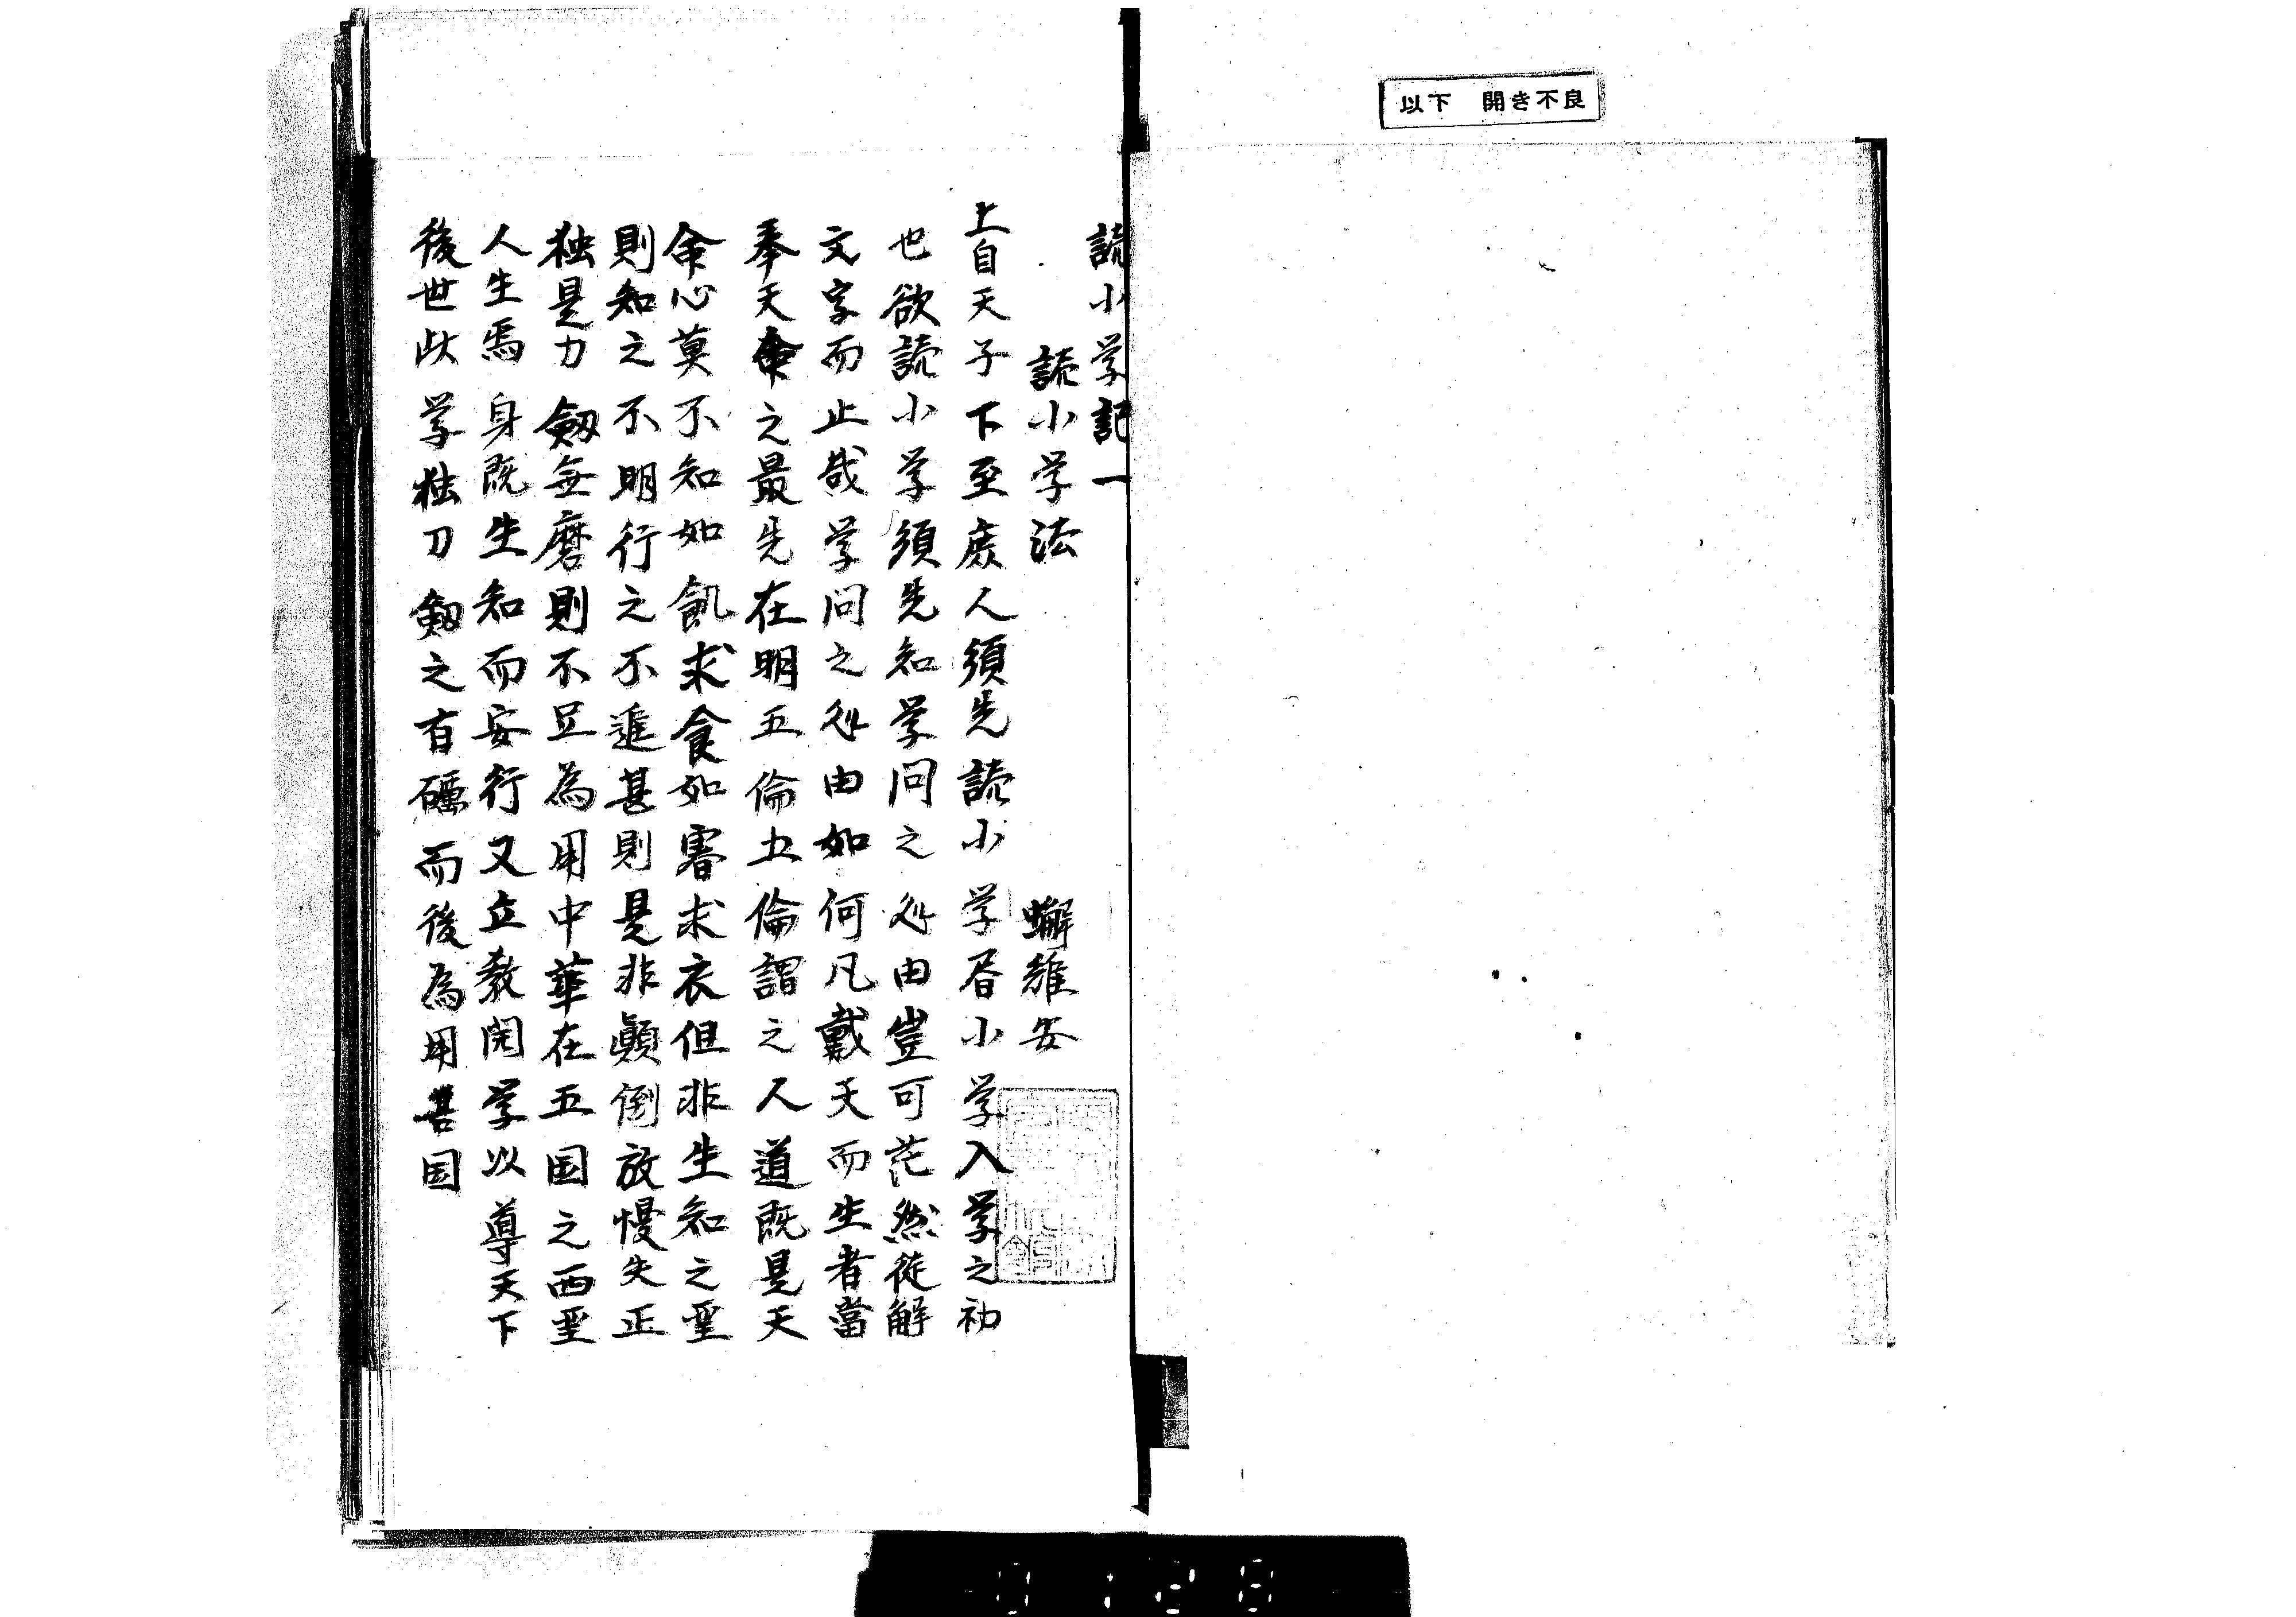 以下 開き不良
読小学記一
読小学法 蠏維安
上自天子下至庻人須先読小学呑小学入学之初
也欲読小学須先知学问之所由豈可茫然徒解
文字而止哉学问之所由如何凡戴天而生者當
奉天命之最先在明五倫五倫謂之人道既是天
命心莫不知如飢求食如寒求衣但非生知之聖
則知之不明行之不進甚則是非顛倒放慢失正
独是刀劔無磨則不足為用中華在五国之西聖
人生焉身既生知而安行又立教開学以導天下
後世此学独刀劔之有礪而後為用吾国
0128